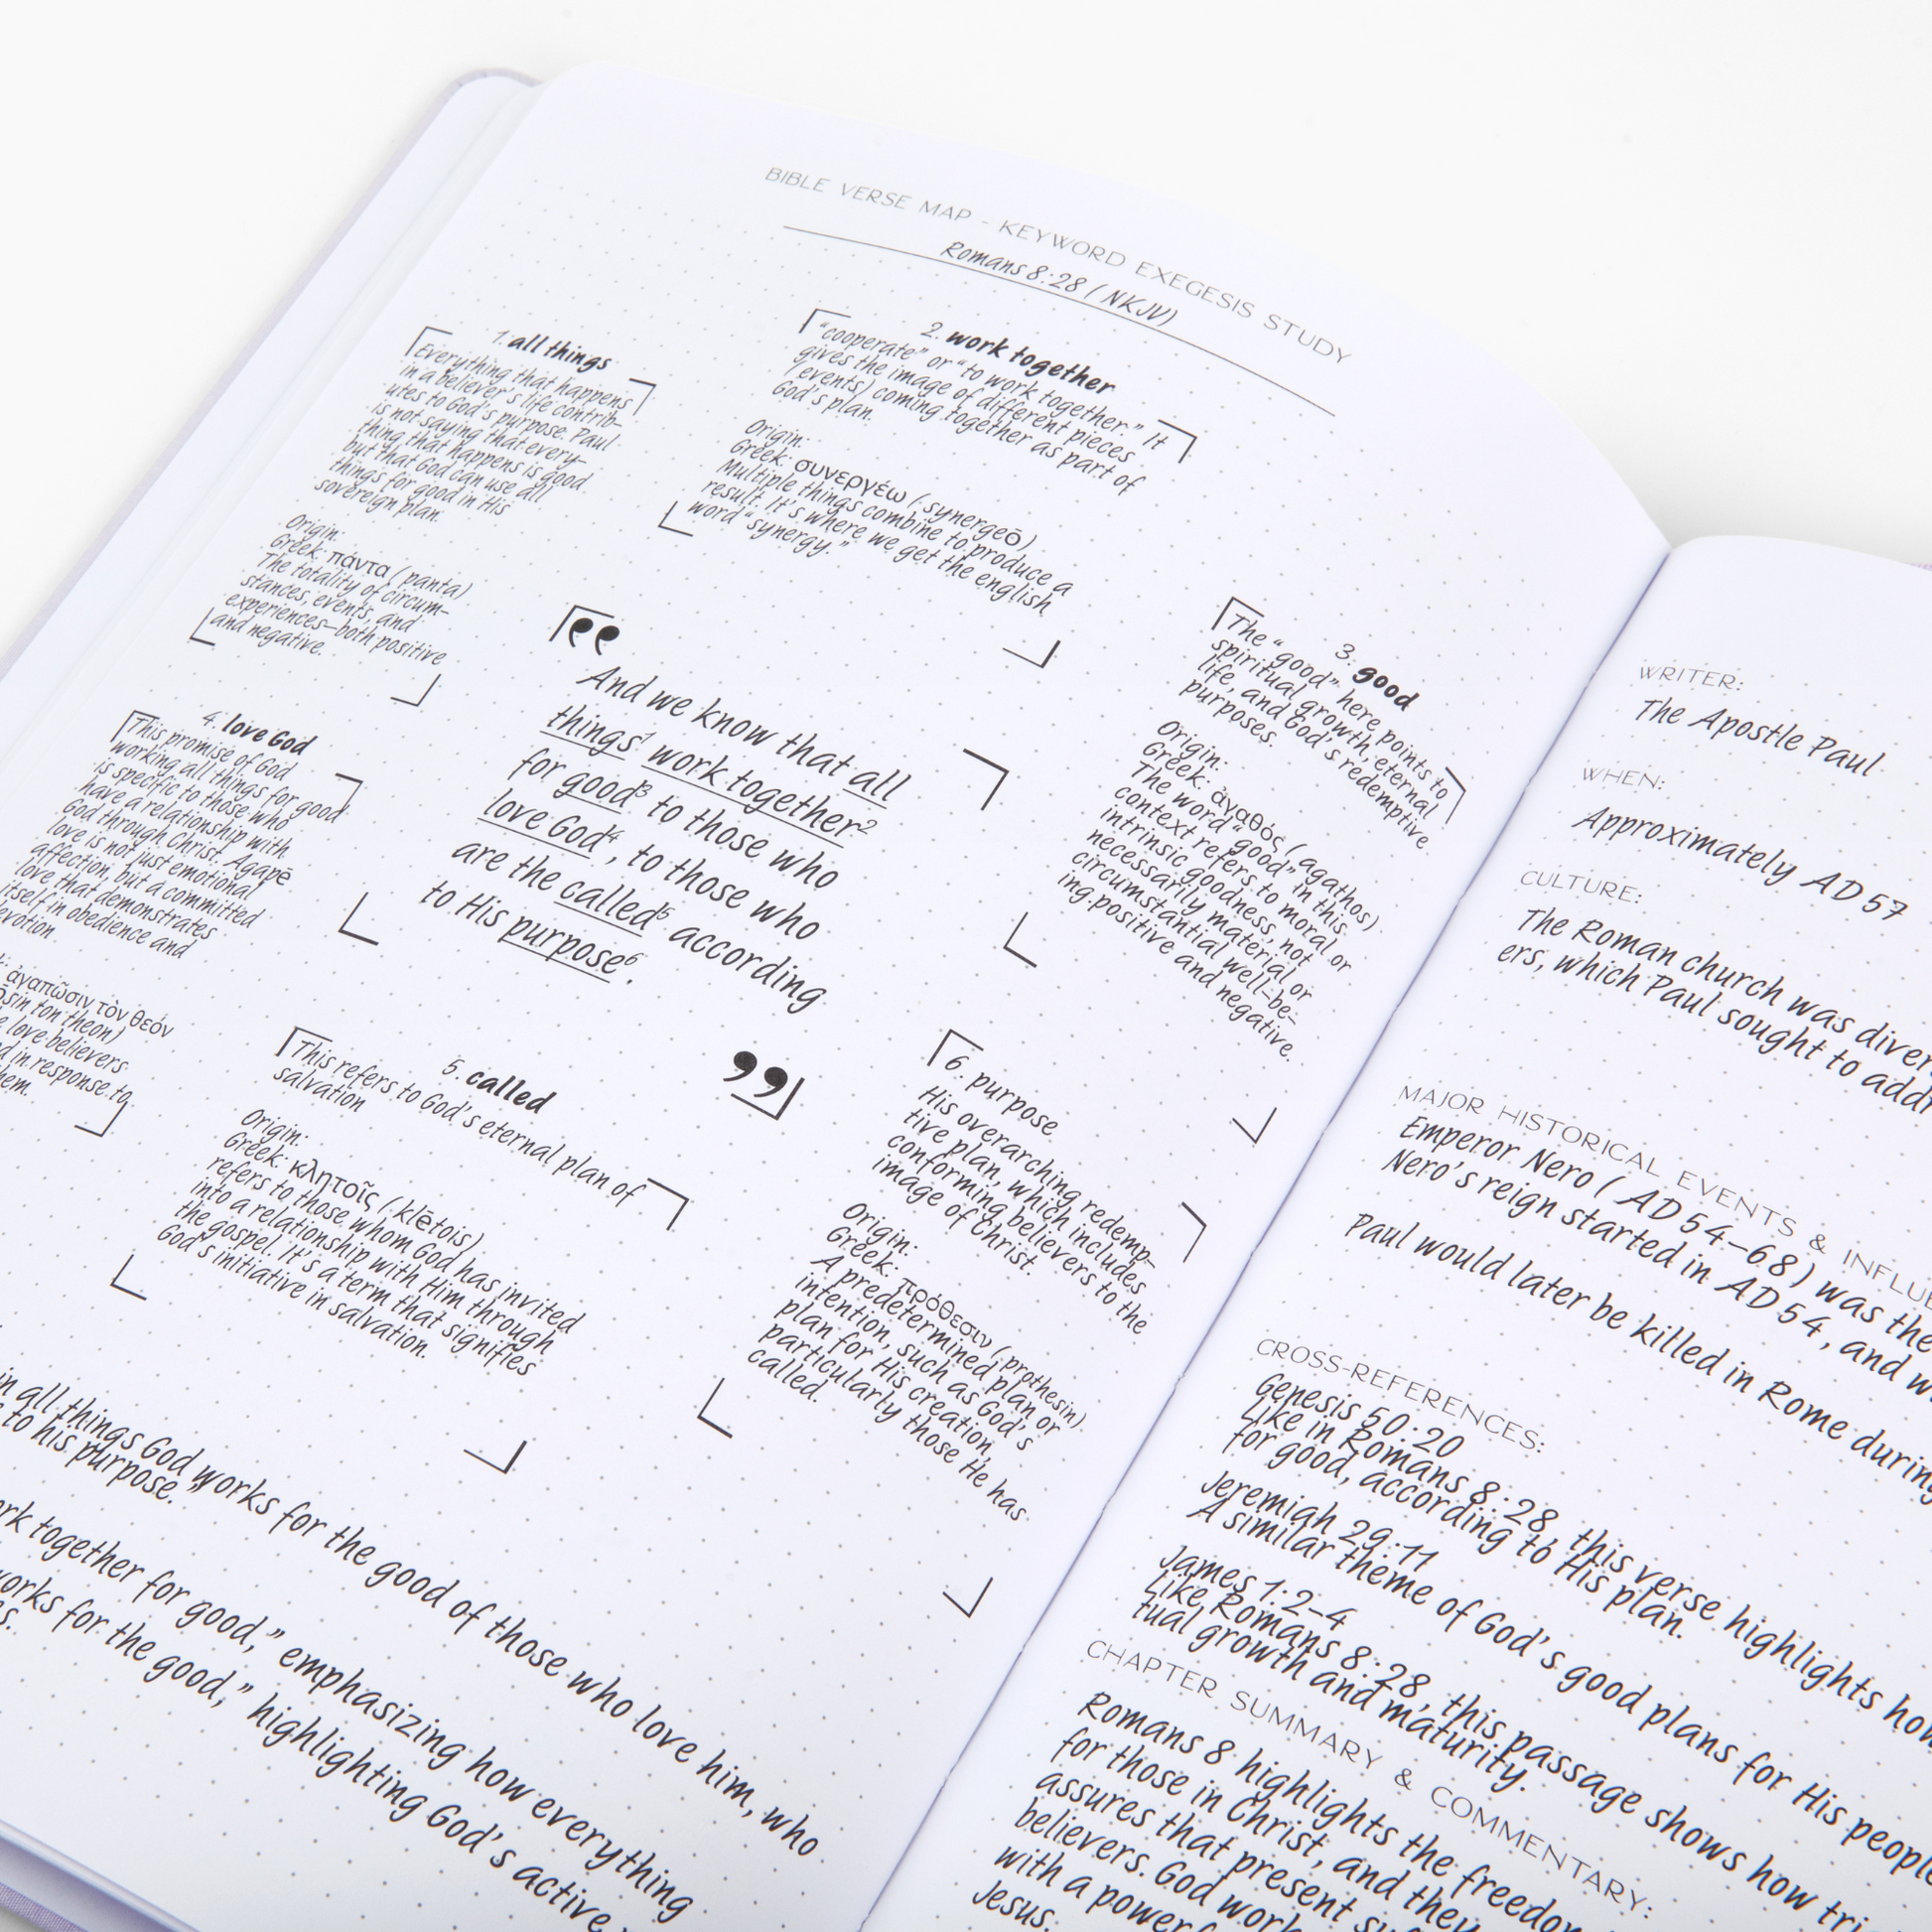 BIBLE VERSE MAP - KEYWORD EXEGESIS STUDY
Romans 8:28 (NKJV)
1. all things
Everything that happens
in a believer's life contrib-
utes to God's purpose. Paul
is not saying that every-
thing that happens is good
but that God can use all
things for good in His
sovereign plan.
Origin:
Greek: πάντα (panta)
The totality of circum-
stances, events, and
experiences—both positive
and negative.
2. work together
"cooperate" or "to work together." It
gives the image of different pieces
(events) coming together as part of
God's plan.
Origin:
Greek: συνεργέω (synergeō)
Multiple things combine to produce a
result. It's where we get the english
word "synergy."
3. good
The "good" here points to
spiritual growth, eternal
life, and God's redemptive
purposes.
Origin:
Greek: ἀγαθός (agathos)
The word "good" in this
context refers to moral or
intrinsic goodness, not
necessarily material or
circumstantial well-be-
ing.positive and negative.
4. love God
This promise of God
working all things for good
is specific to those who
have a relationship with
God through Christ. Agapē
love is not just emotional
affection, but a committed
love that demonstrates
itself in obedience and
evotion
: ἀγαπῶσιν τὸν θεόν
sin ton theon)
love believers
d in response to
hem.
“
And we know that all
things¹ work together²
for good³ to those who
love God⁴, to those who
are the called⁵ according
to His purpose⁶.
”
5. called
This refers to God's eternal plan of
salvation
Origin:
Greek: κλητοῖς (klētois)
refers to those whom God has invited
into a relationship with Him through
the gospel. It's a term that signifies
God's initiative in salvation.
6. purpose
His overarching redemp-
tive plan, which includes
conforming believers to the
image of Christ.
Origin:
Greek: πρόθεσιν (prothesin)
A predetermined plan or
intention, such as God's
plan for His creation,
particularly those He has
called.
in all things God works for the good of those who love him, who
to his purpose."
rk together for good," emphasizing how everything
works for the good," highlighting God's active
s.
WRITER:
The Apostle Paul
WHEN:
Approximately AD 57
CULTURE:
The Roman church was diver
ers, which Paul sought to addr
MAJOR HISTORICAL EVENTS & INFLUE
Emperor Nero (AD 54–68) was the
Nero's reign started in AD 54, and w
Paul would later be killed in Rome during
CROSS-REFERENCES:
Genesis 50:20
Like in Romans 8:28, this verse highlights how
for good, according to His plan.
Jeremiah 29:11
A similar theme of God's good plans for His people
James 1:2-4
Like Romans 8:28, this passage shows how tri
tual growth and maturity.
CHAPTER SUMMARY & COMMENTARY:
Romans 8 highlights the freedom
for those in Christ, and they
assures that present su
believers. God work
with a power
Jesus.